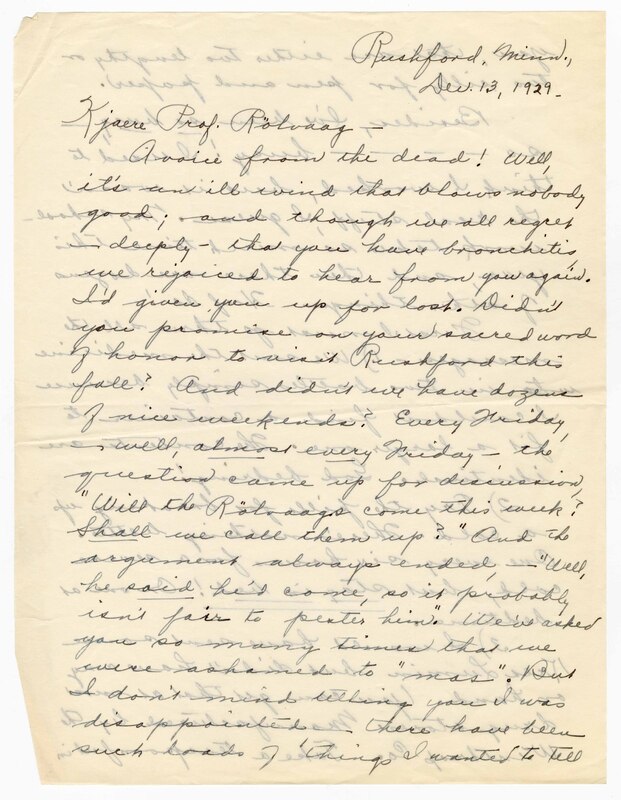 Rushford, Minn.,
Dec. 13, 1929.
Kjaere Prof. Rölvaag —
A voice from the dead! Well,
it's an ill wind that blows nobody
good; and though we all regret
— deeply — that you have bronchitis,
we rejoiced to hear from you again.
I'd given you up for lost. Didn't
you promise on your sacred word
of honor to visit Rushford this
fall? And didn't we have dozens
of nice weekends? Every Friday,
— well, almost every Friday — the
question came up for discussion,
"Will the Rölvaags come this week?
Shall we call them up?" And the
argument always ended, — "Well,
he said he'd come, so it probably
isn't fair to pester him". We've asked
you so many times that we
were ashamed to "mas". But
I don't mind telling you I was
disappointed — there have been
such loads of things I wanted to tell